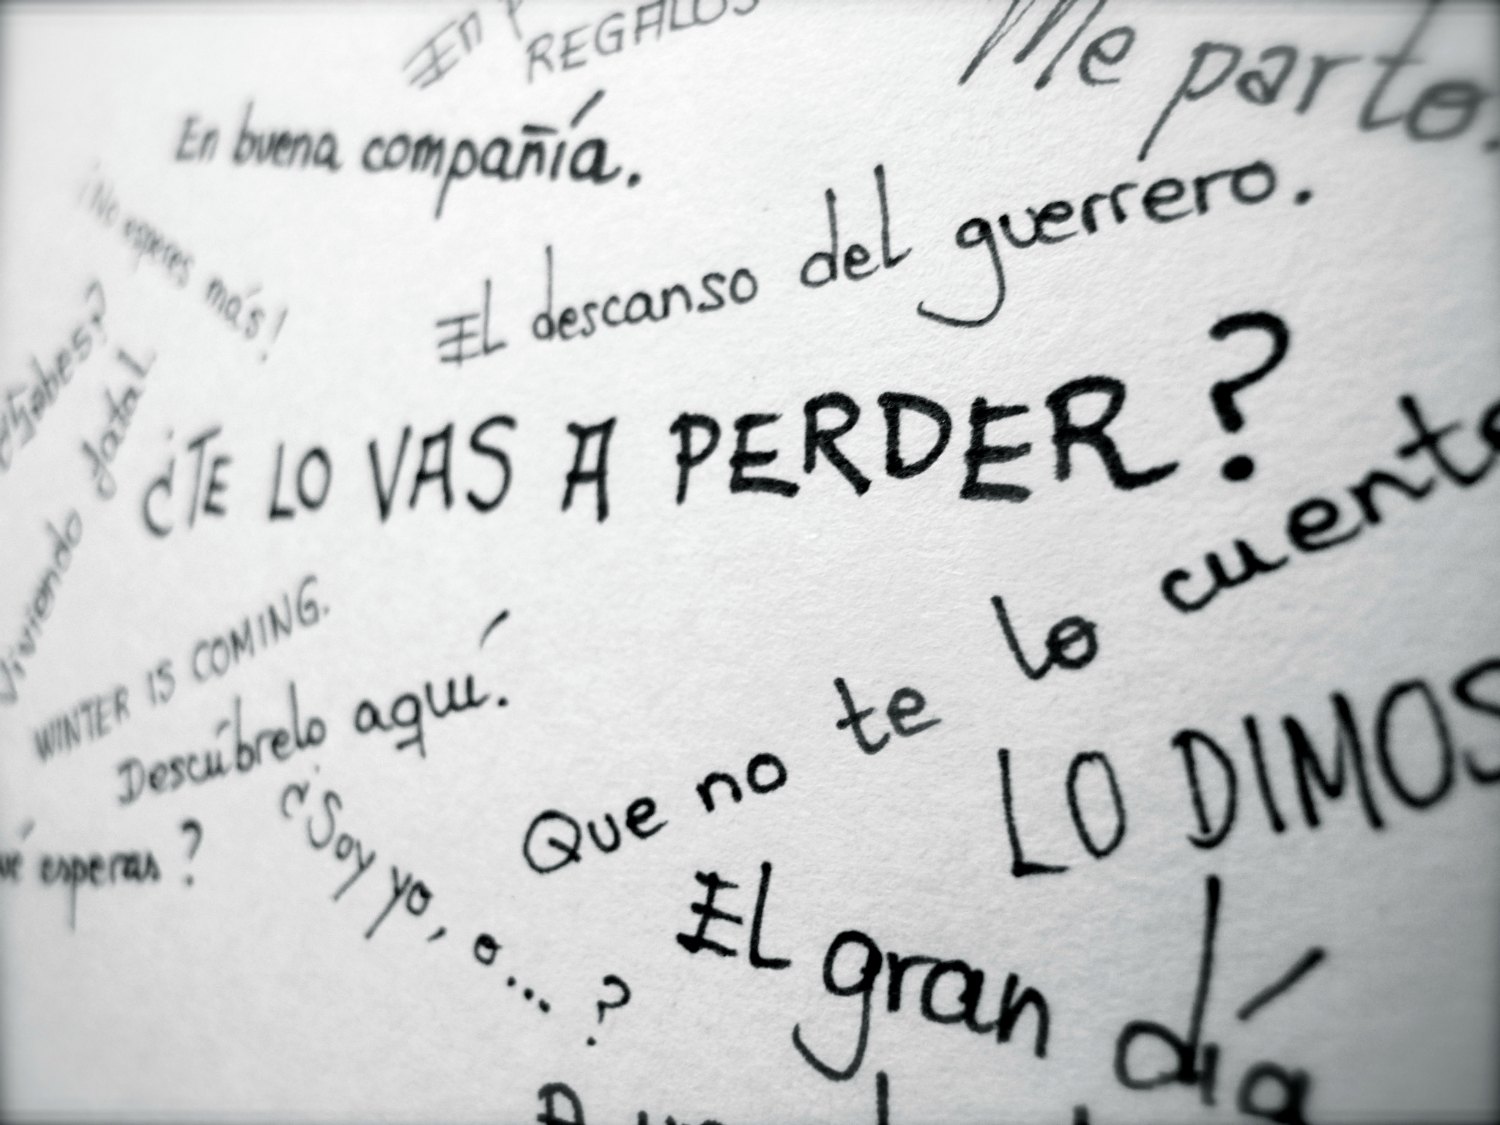 En
REGALOS
Me parto.
En buena compañía.
¡No esperes más!
El descanso del guerrero.
¿Sabes?
¿TE LO VAS A PERDER?
Viviendo
Que no te lo cuente
WINTER IS COMING.
Descúbrelo aquí.
LO DIMOS
esperas?
¿Soy yo, o...?
El gran día